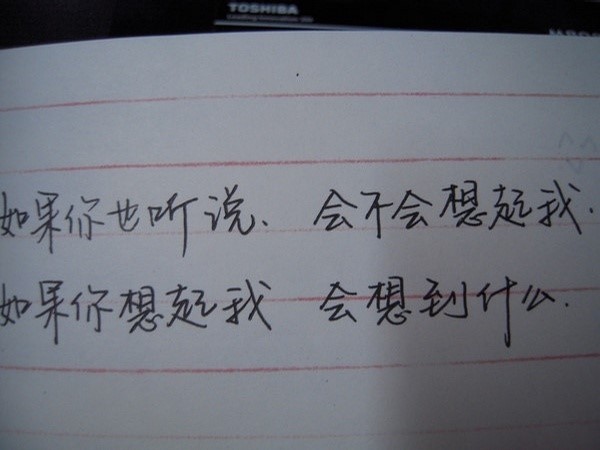 TOSHIBA
Leading Innovation >>>
如果你也听说、会不会想起我.
如果你想起我 会想到什么.